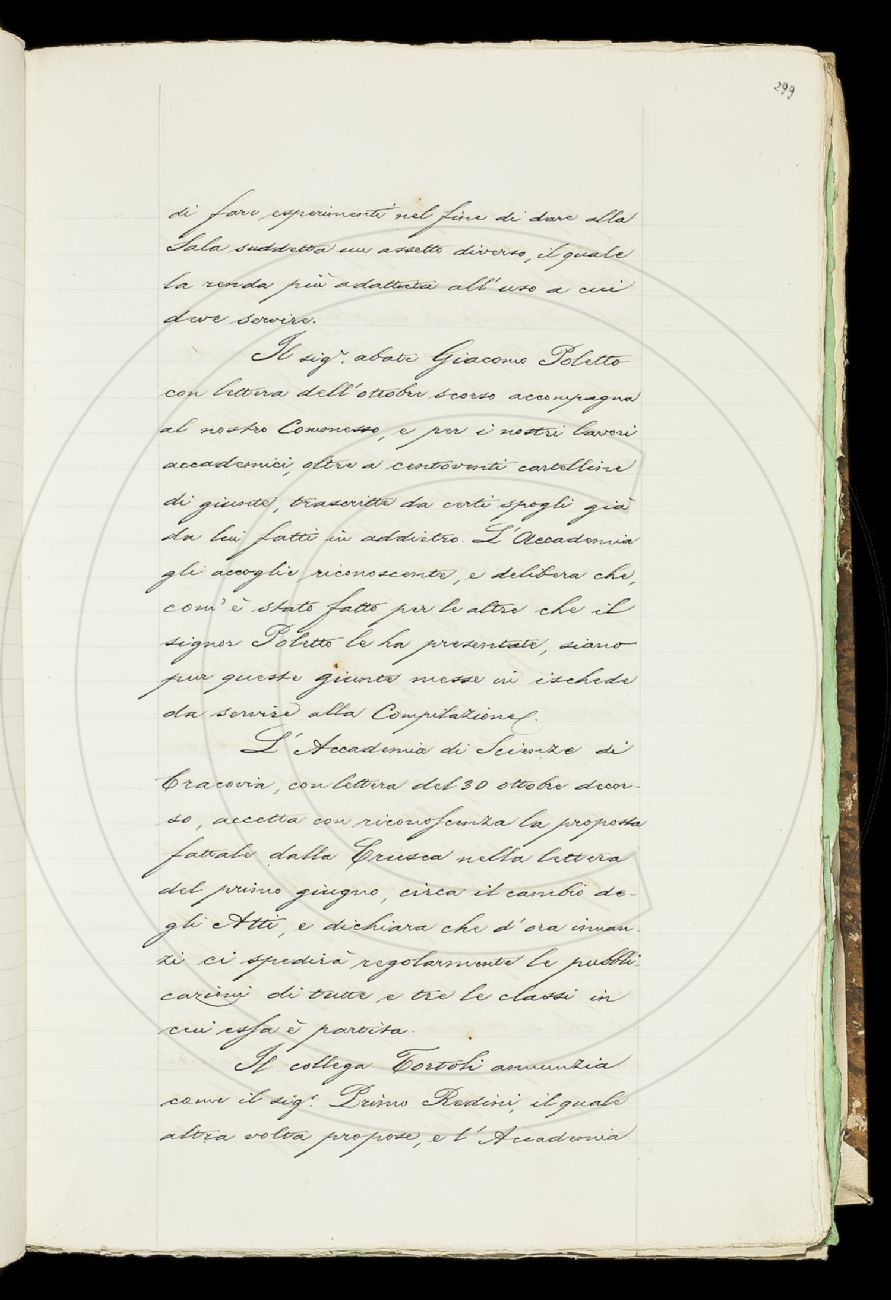 299
di fare esperimenti nel fine di dare alla
Sala suddetta un assetto diverso, il quale
la renda più adattata all'uso a cui
deve servire.
Il sigr. abate Giacomo Poletto
con lettera dell'ottobre scorso accompagna
al nostro Consesso, e per i nostri lavori
accademici, oltre a centoventi cartelline
di giunte, trascritte da certi spogli già
da lui fatti in addietro. L'Accademia
gli accoglie riconoscente, e delibera che,
com'è stato fatto per le altre che il
signor Poletto le ha presentate, siano
pur queste giunte messe in ischede
da servire alla Compilazione.
L'Accademia di Scienze di
Cracovia, con lettera del 30 ottobre decor-
so, accetta con riconoscenza la proposta
fattale dalla Crusca nella lettera
del primo giugno, circa il cambio de-
gli Atti, e dichiara che d'ora innan-
zi ci spedirà regolarmente le pubbli-
cazioni di tutte e tre le classi in
cui essa è partita.
Il collega Tortoli annunzia
come il sigr. Primo Redini, il quale
altra volta propose, e l'Accademia